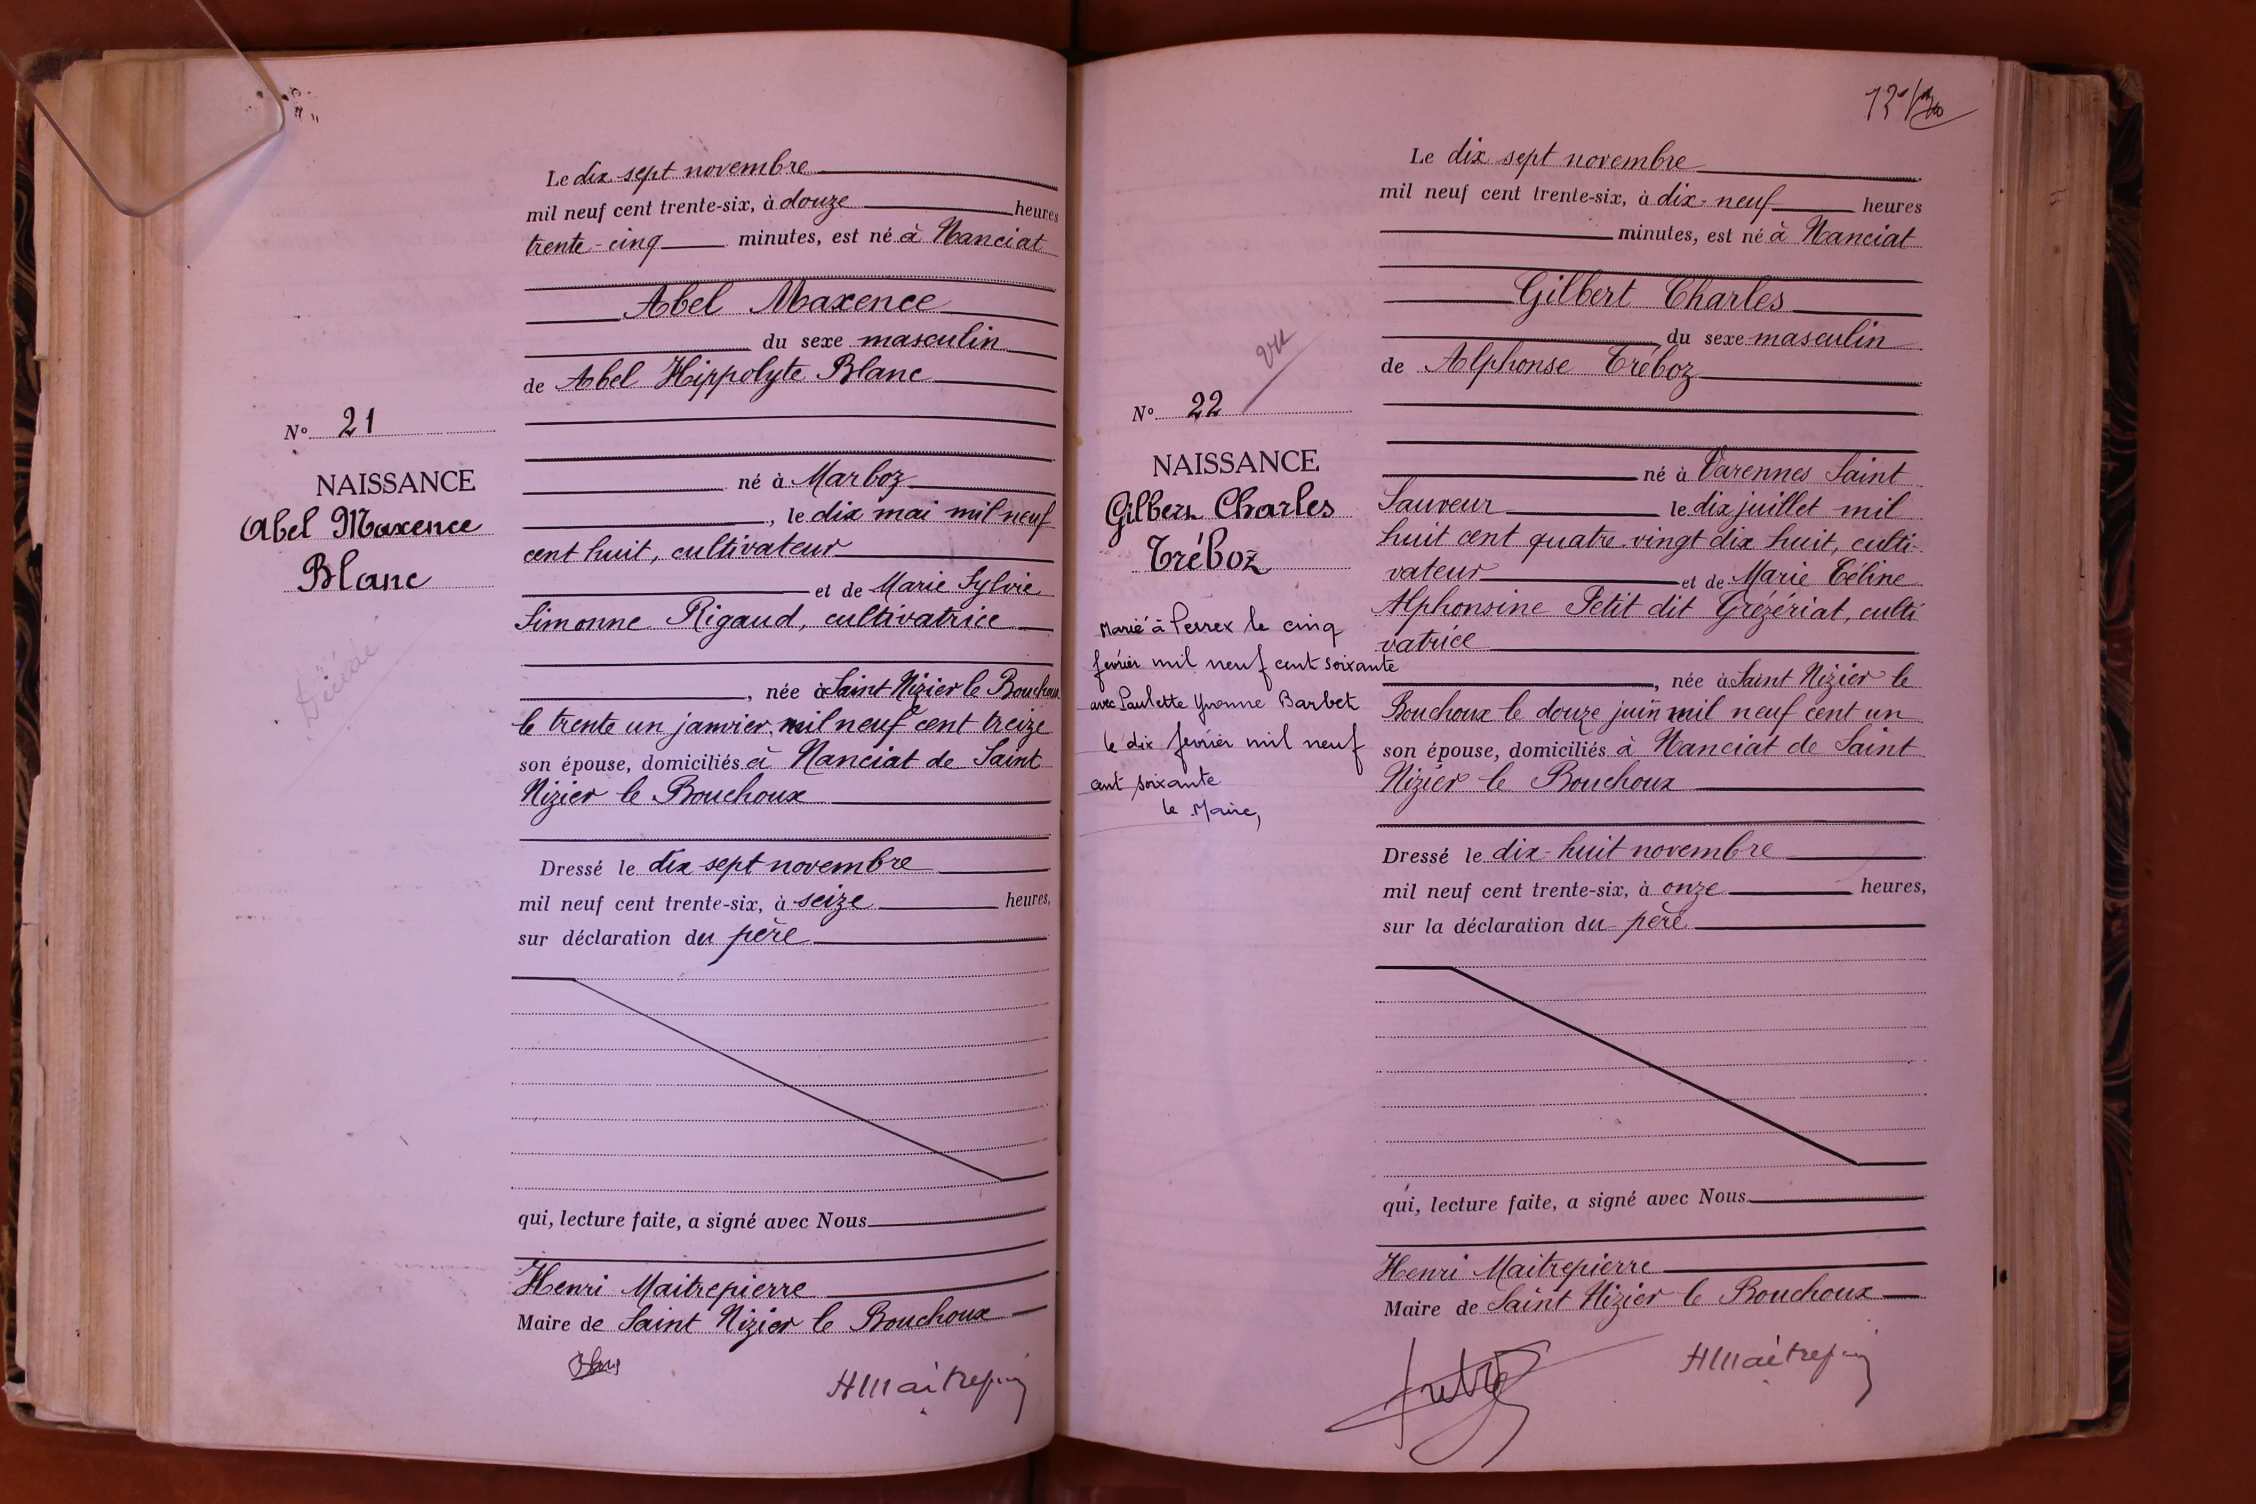 Le dix sept novembre
mil neuf cent trente-six, à douze heures
trente-cinq minutes, est né à Nanciat
Abel Maxence
du sexe masculin
de Abel Hippolyte Blanc
N° 21
NAISSANCE
Abel Maxence
Blanc
Décédé
né à Marboz
, le dix mai mil neuf
cent huit, cultivateur
et de Marie Sylvie
Simonne Rigaud, cultivatrice
, née à Saint Nizier le Bouchoux
le trente un janvier mil neuf cent treize
son épouse, domiciliés à Nanciat de Saint
Nizier le Bouchoux
Dressé le dix sept novembre
mil neuf cent trente-six, à seize heures,
sur déclaration du père
qui, lecture faite, a signé avec Nous
Henri Maitrepierre
Maire de Saint Nizier le Bouchoux
Blanc
HMaitrepierre
Le dix sept novembre
mil neuf cent trente-six, à dix-neuf heures
minutes, est né à Nanciat
Gilbert Charles
du sexe masculin
de Alphonse Tréboz
vu
N° 22
NAISSANCE
Gilbert Charles
Tréboz
Marié à Perrex le cinq
fevrier mil neuf cent soixante
avec Paulette Yvonne Barbet
le dix fevrier mil neuf
cent soixante
le Maire,
né à Varennes Saint
Sauveur le dix juillet mil
huit cent quatre-vingt dix huit, culti-
vateur et de Marie Céline
Alphonsine Petit dit Grézériat, culti
vatrice
, née à Saint Nizier le
Bouchoux le douze juin mil neuf cent un
son épouse, domiciliés à Nanciat de Saint
Nizier le Bouchoux
Dressé le dix-huit novembre
mil neuf cent trente-six, à onze heures,
sur la déclaration du père
qui, lecture faite, a signé avec Nous
Henri Maitrepierre
Maire de Saint Nizier le Bouchoux
HMaitrepierre